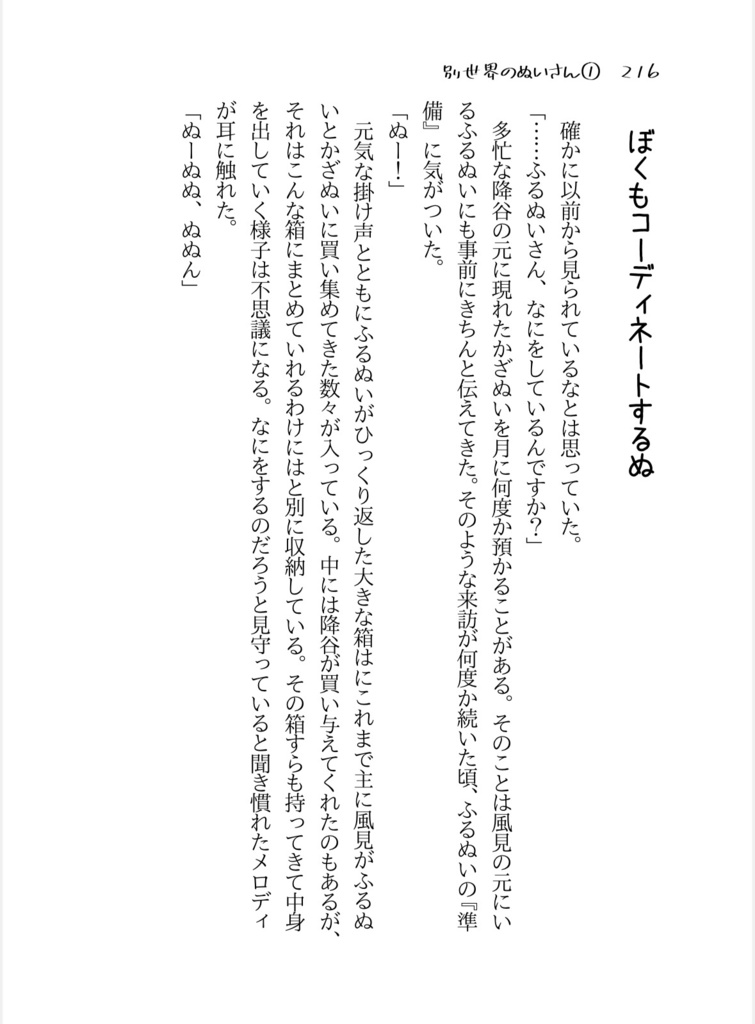 別世界のぬいさん① 216
ぼくもコーディネートするぬ
確かに以前から見られているなとは思っていた。
「……ふるぬいさん、なにをしているんですか？」
多忙な降谷の元に現れたかざぬいを月に何度か預かることがある。そのことは風見の元にい
るふるぬいにも事前にきちんと伝えてきた。そのような来訪が何度か続いた頃、ふるぬいの『準
備』に気がついた。
「ぬー！」
元気な掛け声とともにふるぬいがひっくり返した大きな箱はにこれまで主に風見がふるぬ
いとかざぬいに買い集めてきた数々が入っている。中には降谷が買い与えてくれたのもあるが、
それはこんな箱にまとめていれるわけにはと別に収納している。その箱すらも持ってきて中身
を出していく様子は不思議になる。なにをするのだろうと見守っていると聞き慣れたメロディ
が耳に触れた。
「ぬーぬぬ、ぬぬん」